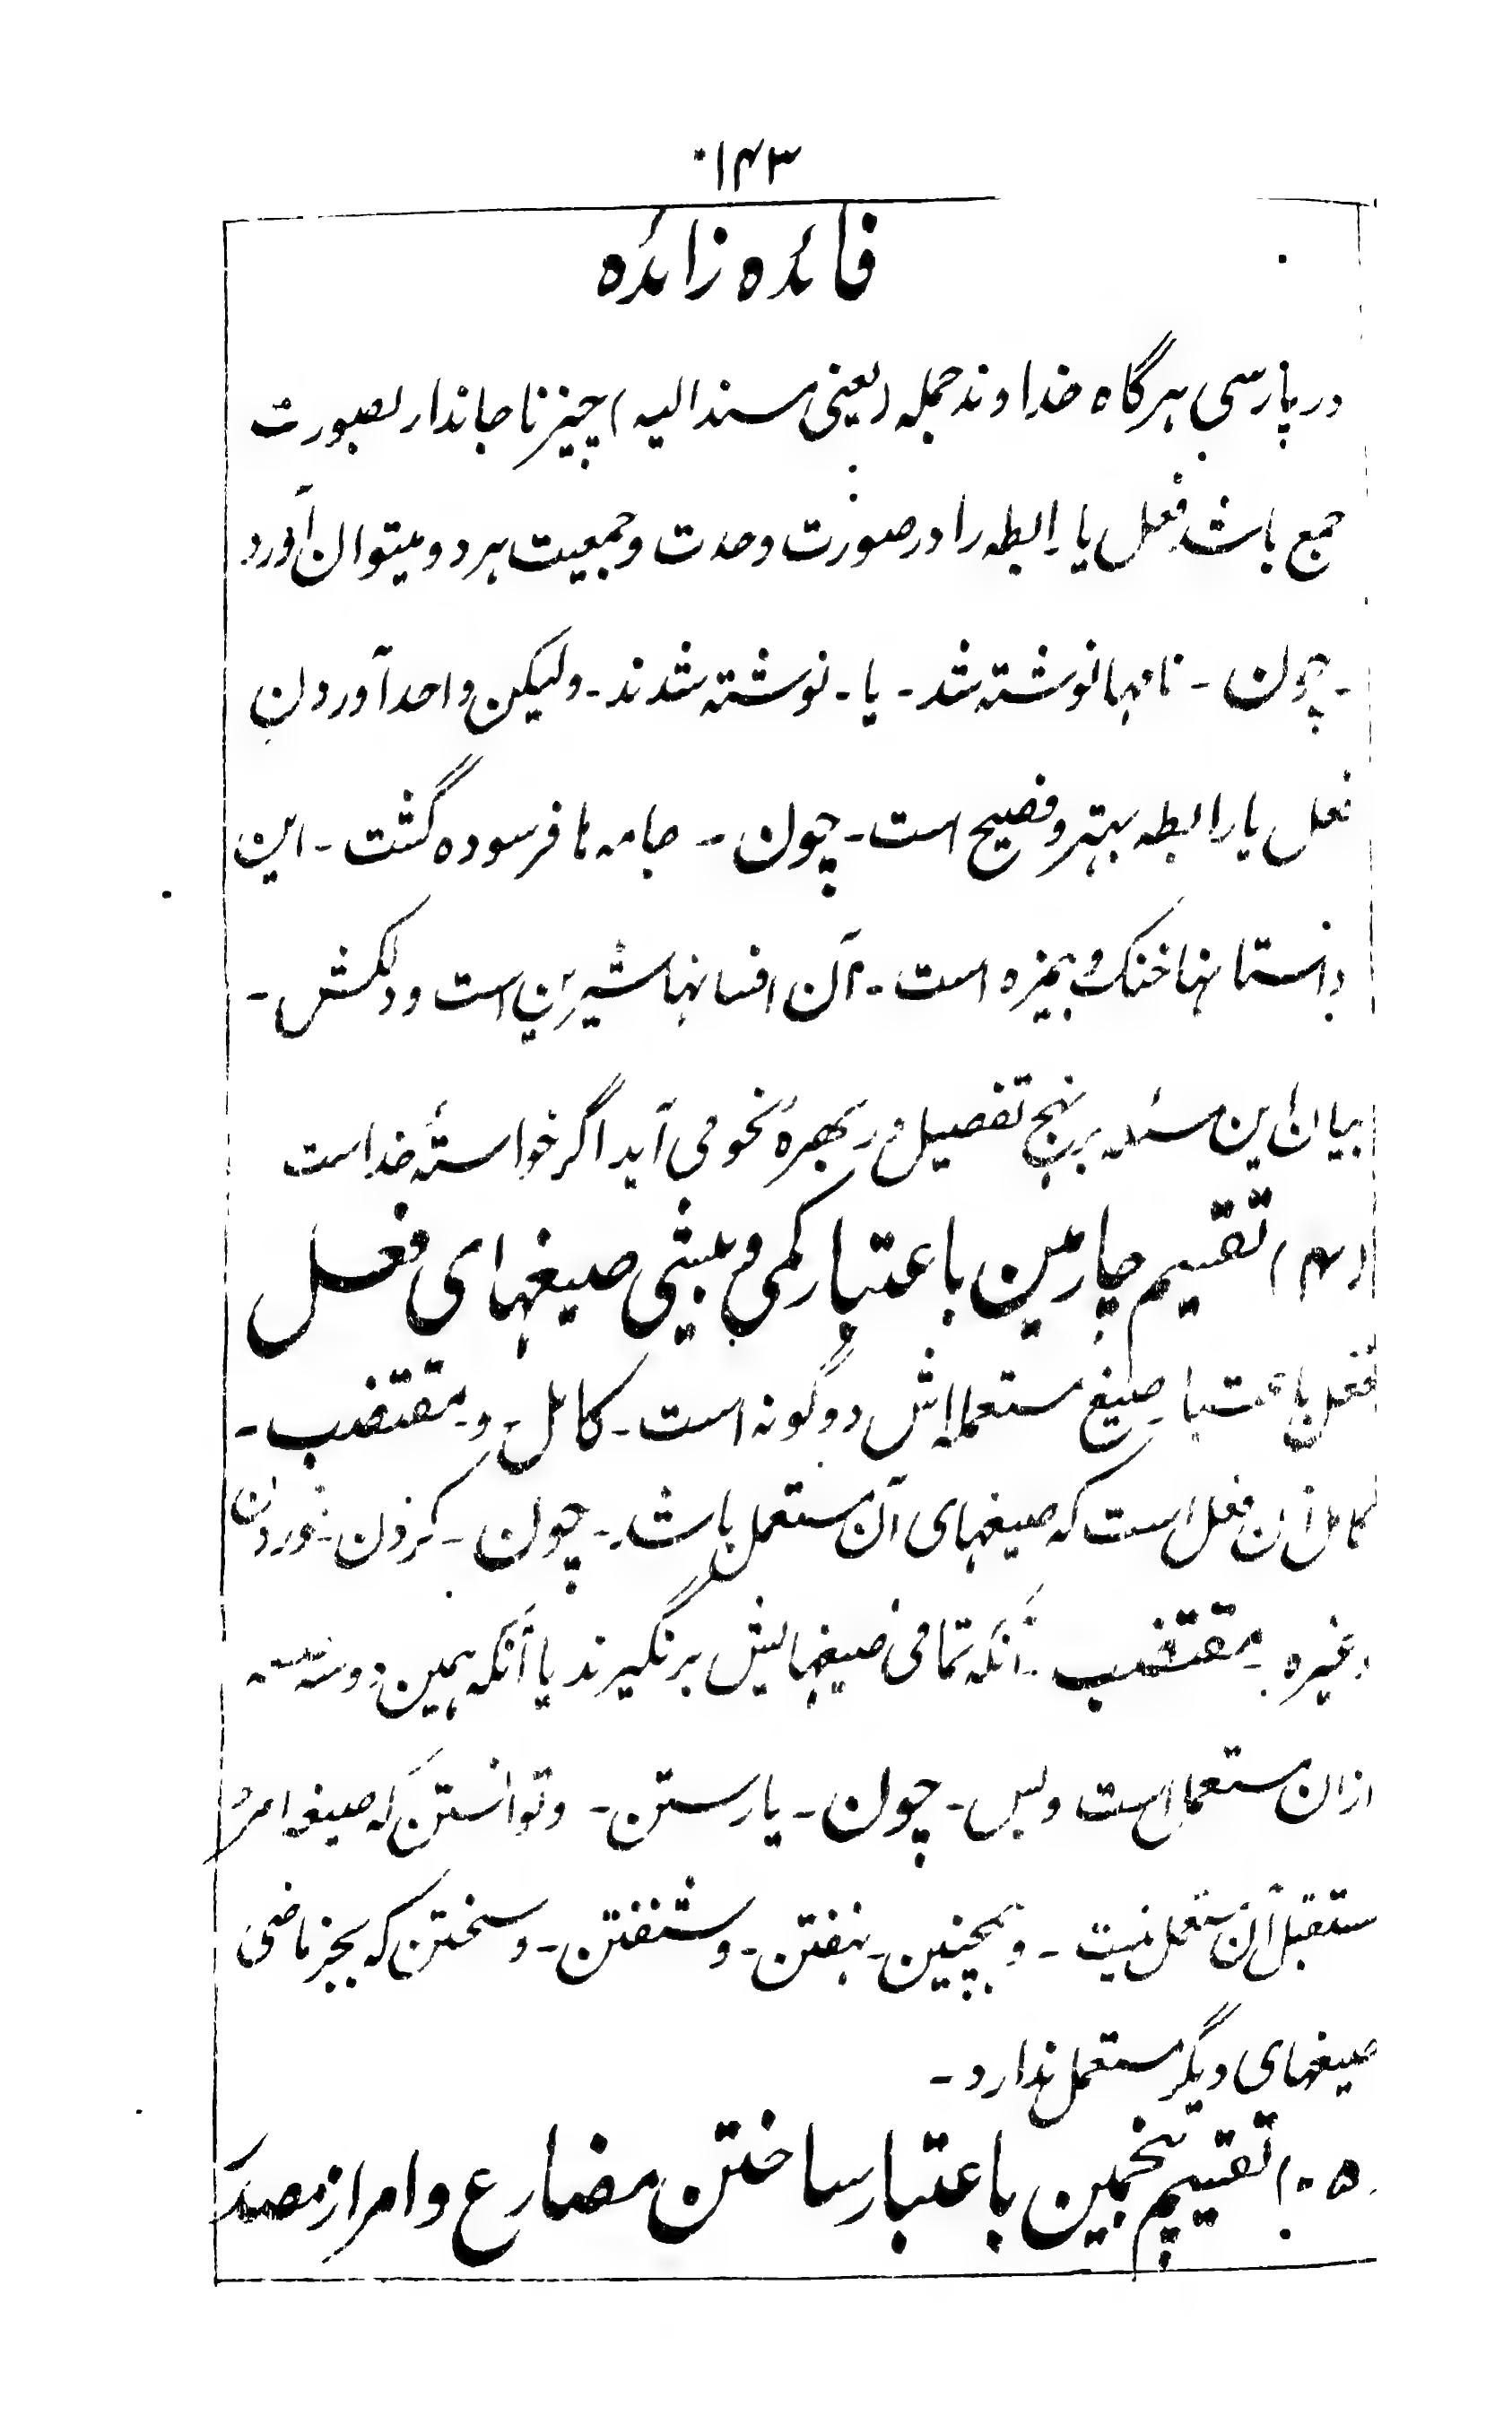 ۱۴۳
فائده زائده
در پارسی هرگاه خداوند جمله (یعنی مسند الیه) چیز نا جاندار بصورت
جمع باشد فعل یا رابطه را در صورت وحدت و جمعیت هر دو میتوان آورد
- چون - نامها نوشته شد - یا - نوشته شدند - ولیکن واحد آوردن
فعل یا رابطه بهتر و فصیح است - چون - جامه ها فرسوده گشت - این
داستانها خنک و بیمزه است - آن افسانها شیرین است و دلکش -
بیان این مسئله بر نهج تفصیل در بهرهٔ نحو می آید اگر خواستهٔ خداست
(۴) تقسیم چارمین باعتبار کمی و بیشی صیغهای فعل
فعل باعتبار صیغ مستعمله اش دو گونه است - کامل - و - مقتضب -
کامل آن فعل است که صیغهای آن مستعمل باشد - چون - کردن - خوردن
وغیره - مقتضب - آنکه تمامی صیغهایش برنگیرند یا آنکه همین دو سه صیغه
ازان مستعمل است و بس - چون - یارستن - و توانستن که صیغه امر و
مستقبل آن مستعمل نیست - و همچنین - نهفتن - و شنفتن - و سختن که بجز ماضی
صیغهای دیگر مستعمل ندارد -
(۵) تقسیم پنجمین باعتبار ساختن مضارع و امر از مصدر